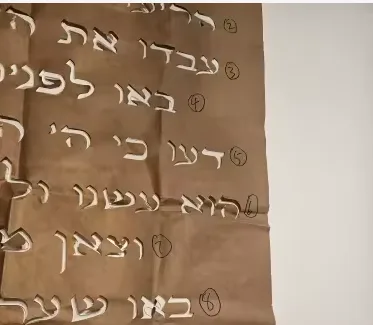 ② הריעו
③ עבדו את ה
④ באו לפני
⑤ דעו כי ה' ה
⑥ הוא עשנו ול
⑦ וצאן מ
⑧ באו שער